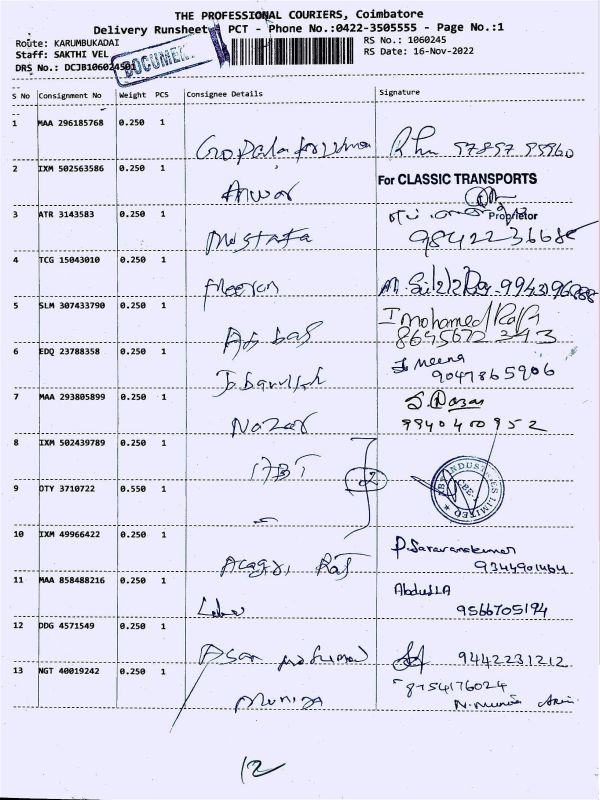 THE PROFESSIONAL COURIERS, Coimbatore
Delivery Runsheet PCT - Phone No.:0422-3505555 - Page No.:1
Route: KARUMBUKADAI
Staff: SAKTHI VEL
DRS No.: DCJB106024501
DOCUMENT
RS No.: 1060245
RS Date: 16-Nov-2022
S No Consignment No Weight PCS Consignee Details Signature
1 MAA 296185768 0.250 1
2 IXM 502563586 0.250 1 Anwar
For CLASSIC TRANSPORTS
Proprietor
3 ATR 3143583 0.250 1 Mustafa 9842236686
4 TCG 15043010 0.250 1 Meeran
5 SLM 307433790 0.250 1 Abbas I Mohamed Rafi
8645672343
6 EDQ 23788358 0.250 1 Meena
9047865906
7 MAA 293805899 0.250 1 Nazar S. Nazar
9940400952
8 IXM 502439789 0.250 1 ABT
2
9 OTY 3710722 0.550 1
INDUSTRIES LIMITED
CBE
10 IXM 49966422 0.250 1 P. Saravanakumar
9344901464
11 MAA 858488216 0.250 1 AbdullA
9566705194
12 DDG 4571549 0.250 1 Asan Mohamed 9442231212
13 NGT 40019242 0.250 1 Muniya 8754176024
12